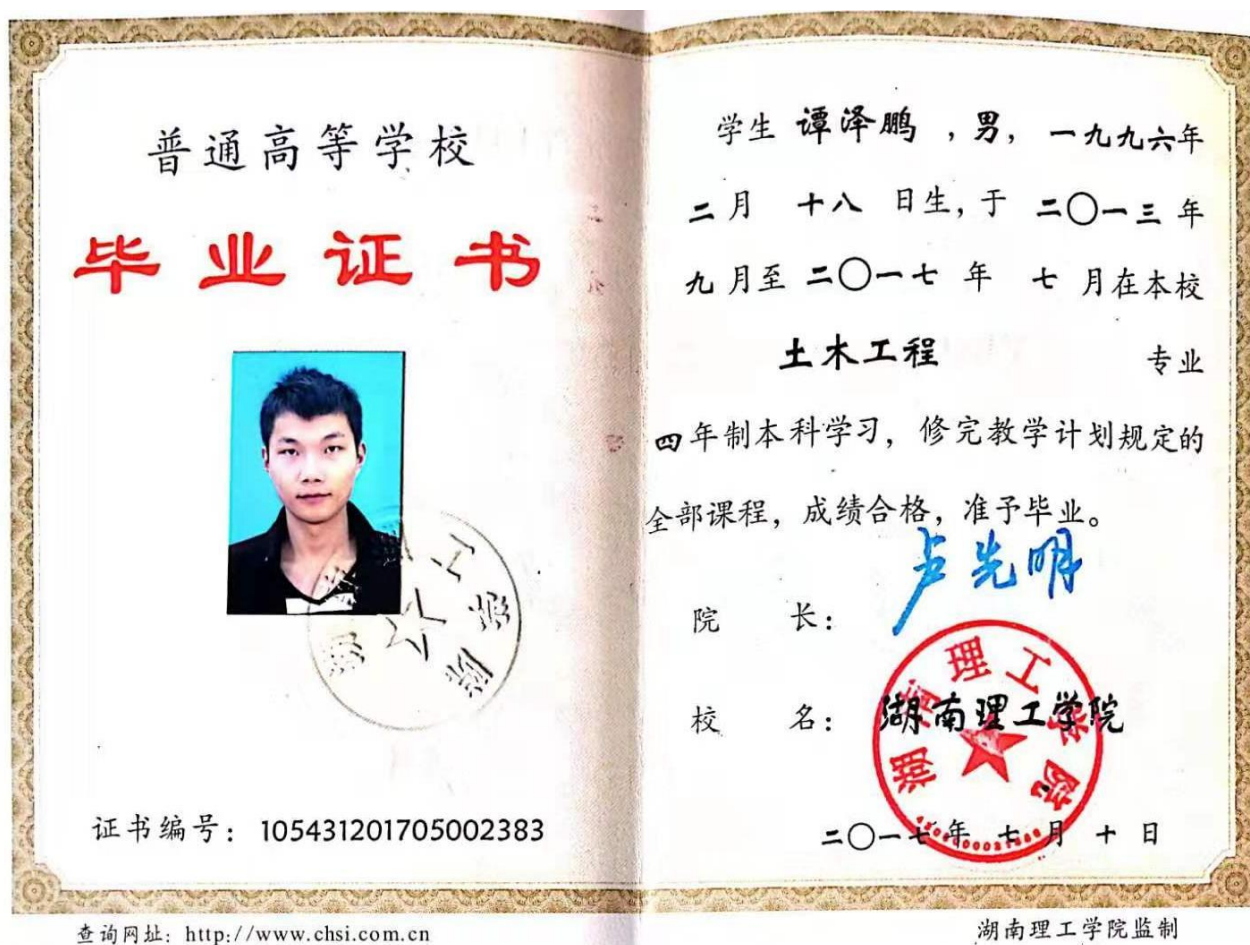 普通高等学校
毕业证书
证书编号：105431201705002383
查询网址：http://www.chsi.com.cn
学生 谭泽鹏 ，男， 一九九六年
二月 十八 日生，于 二〇一三 年
九月至 二〇一七 年 七 月在本校
土木工程 专业
四年制本科学习，修完教学计划规定的
全部课程，成绩合格，准予毕业。
院 长： 卢先明
校 名： 湖南理工学院
湖南理工学院
二〇一七年 七月 十 日
湖南理工学院监制